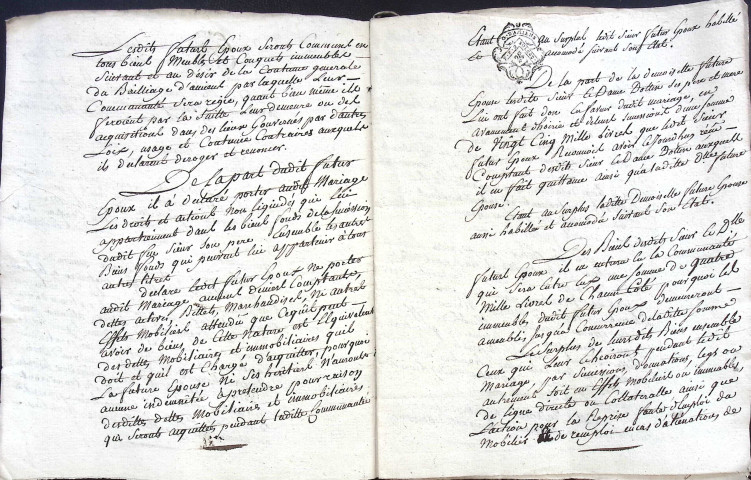 Lesdits futurs Epoux Seront Communs en
tous biens Meubles et Conquets immeubles
Suivant et au désir de la Coutume generale
du Bailliage d'amiens par laquelle Leur
Communauté Sera regie, quant bien même ils
feroient par la Suitte Leur demeure ou des
acquisitions dans des lieux Gouvernés par d'autres
Loix, usages et Coutumes Contraires auxquels
ils declarent deroger et renoncer.
De la part dudit futur
Epoux il a declaré porter audit Mariage
Les droits et actions Non Liquidés qui Lui
appartiennent dans les biens fonds de la succession
dudit feu Sieur Son pere Ensemble les autres
Biens fonds qui peuvent lui appartenir à tous
autres titres
declare Ledit futur Epoux Ne porter
audit Mariage aucuns deniers Comptants,
dettes actives, Billets, Marchandises, Ni autres
Effets Mobiliers attendu que Ce qu'il peut
avoir de biens de Cette Nature est L'Equivalent
des dettes Mobiliaires et immobiliaires qu'il
doit et qu'il est Chargé d'aquitter, pourquoi
La future Epouse Ni Ses heritiers N'auront
aucune indemnité a pretendre pour raison
desdittes dettes Mobiliaires et immobiliaires
qui Seront aquittées pendant Ladite Communauté
Etant au Surplus ledit Sieur futur Epoux habillé
et aumodé suivant Son Etat.
De la part de la demoiselle future
Epouse lesdits Sieur et Dame Dottin Ses pere et mere
Lui ont fait don en faveur dudit mariage, en
avancement d'hoirie et future succession d'une somme
de Vingt Cinq Mille Livres que ledit Sieur
futur Epoux Reconnoit avoir Ce jourdhuy reçu
Comptant desdits Sieur et Dame Dottin auxquels
il en fait quittance ainsi que laditte Dlle future
Epouse.
Etant au Surplus laditte Demoiselle future Epouse
aussi habillée et aumodée Suivant Son Etat.
Des Biens desdits Sieur et Dlle
futurs Epoux il en entrera en la Communauté
qui Sera entre Eux une Somme de Quatre
Mille Livres de Chaque Coté pourquoi les
immeubles dudit futur Epoux Demeureront
ameublis jusqu'a Concurrence de laditte Somme
Le Surplus de Susdits Biens ensemble
Ceux qui Leur Echeront pendant ledit
Mariage, par Successions, donnations, Legs ou
autrement Soit en Effets Mobiliers ou immeubles,
de Ligne directe ou Collateralle ainsi que
L'action pour la Reprise faute d'Emploi du
Mobilier et de remploi en cas d'alienations de